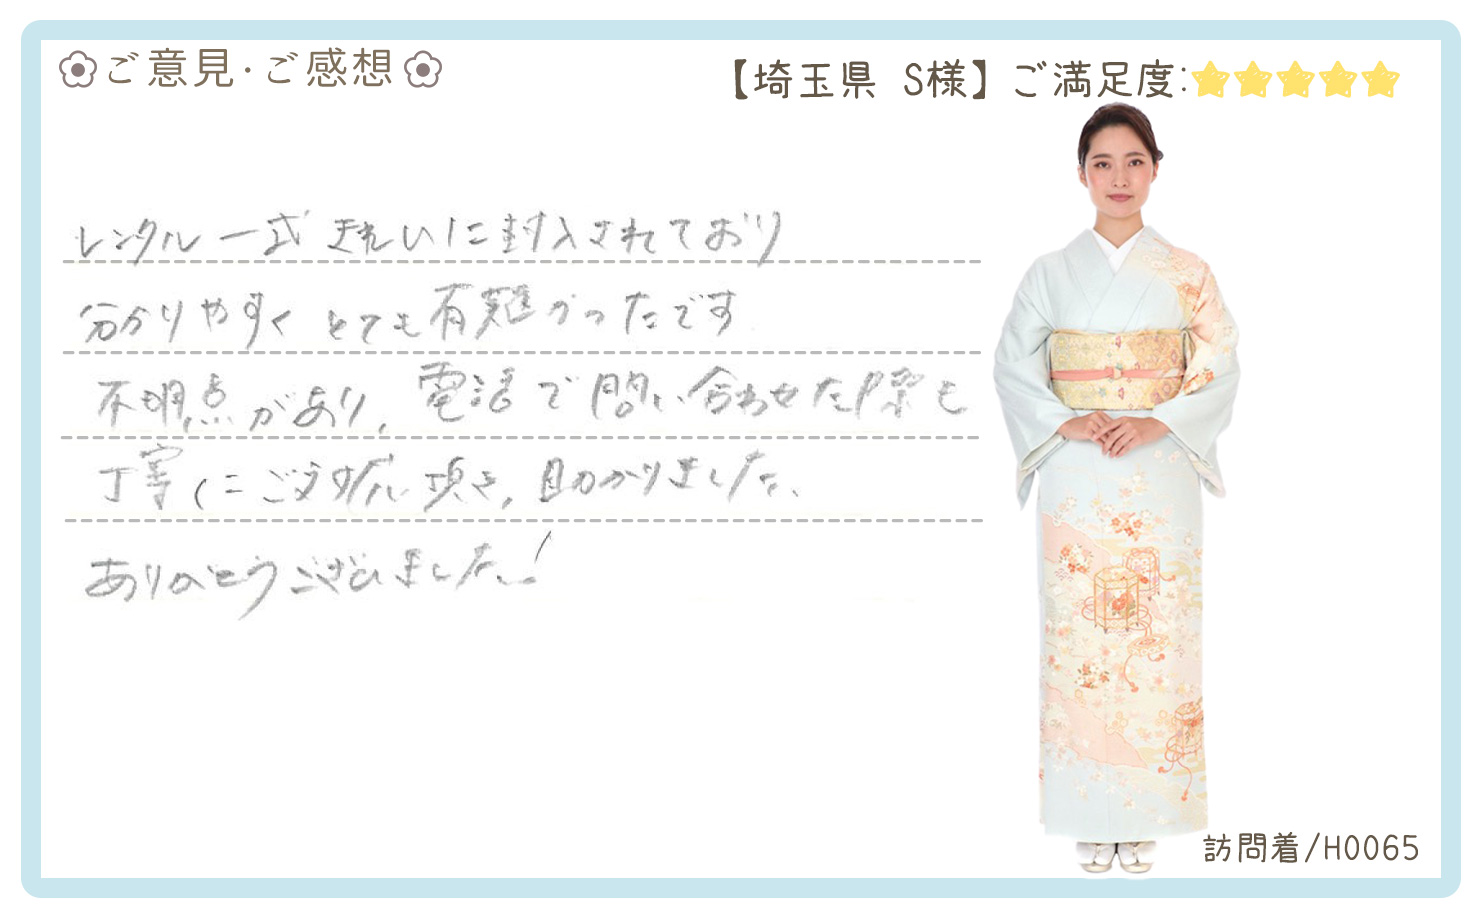 ご意見・ご感想
【埼玉県 S様】ご満足度:
レンタル一式きれいに封入されており
分かりやすくとても有難かったです
不明点があり、電話で問い合わせた際も
丁寧にご対応頂き、助かりました、
ありがとうございました!
訪問着/H0065